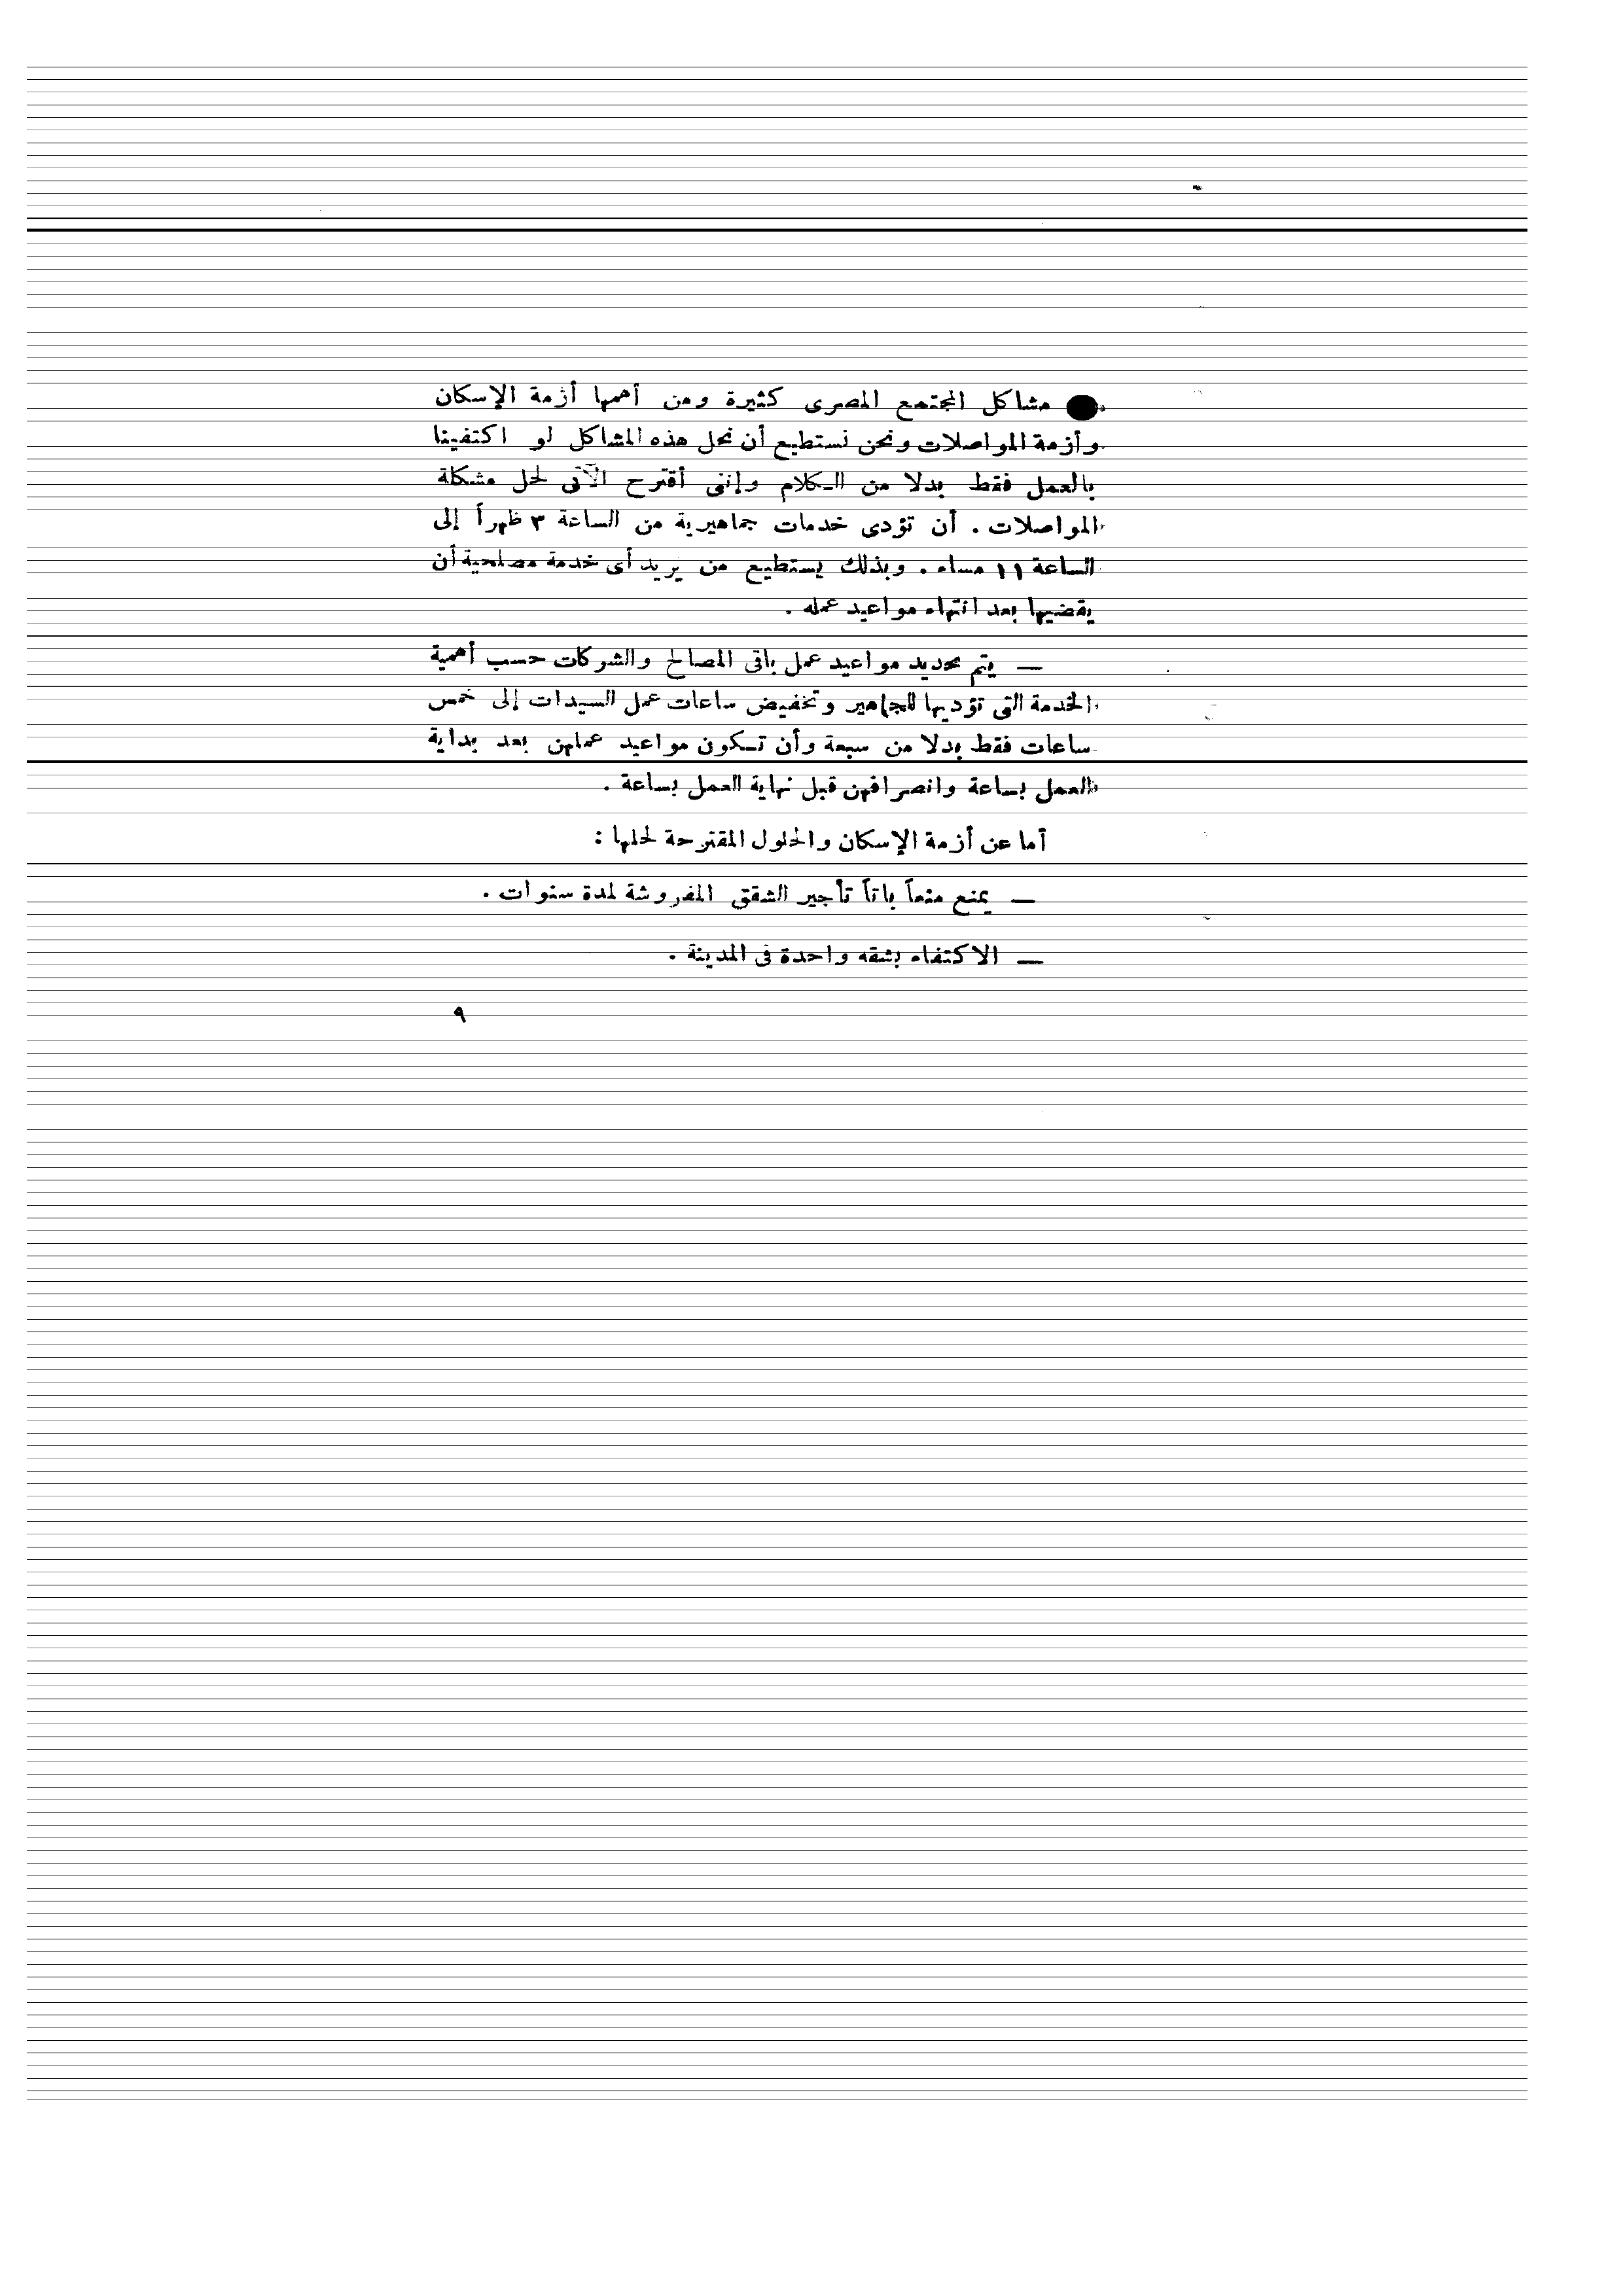 ● مشاكل المجتمع المصرى كثيرة ومن أهمها أزمة الإسكان
وأزمة المواصلات ونحن نستطيع أن نحل هذه المشاكل لو اكتفينا
بالعمل فقط بدلا من الـكلام وإننى أقترح الآتى لحل مشكلة
المواصلات . أن تؤدى خدمات جماهيرية من الساعة ٣ ظهراً إلى
الساعة ١١ مساء . وبذلك يستطيع من يريد أى خدمة مصلحية أن
يقضيها بعد انتهاء مواعيد عمله .
— يتم تحديد مواعيد عمل باقى المصالح والشركات حسب أهمية
الخدمة التى تؤديها للجماهير وتخفيض ساعات عمل السيدات إلى خمس
ساعات فقط بدلا من سبعة وأن تـكون مواعيد عملهن بعد بداية
العمل بساعة وانصرافهن قبل نهاية العمل بساعة .
أما عن أزمة الإسكان والحلول المقترحة لحلها :
— يمنع منعاً باتاً تأجير الشقق المفروشة لمدة سنوات .
— الاكتفاء بشقه واحدة فى المدينة .
٩